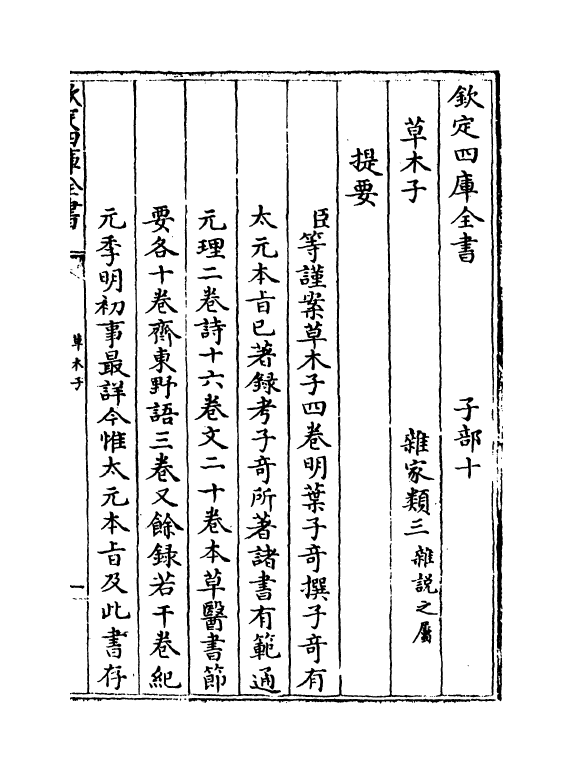 欽定四庫全書　子部十
草木子　雜家類三雜説之屬
提要
臣等謹案草木子四卷明葉子奇撰子奇有
太元本旨已著録考子奇所著諸書有範通
元理二卷詩十六卷文二十卷本草醫書節
要各十卷齊東野語三卷又餘録若干卷紀
元季明初事最詳今惟太元本旨及此書存
欽定四庫全書
草木子
一